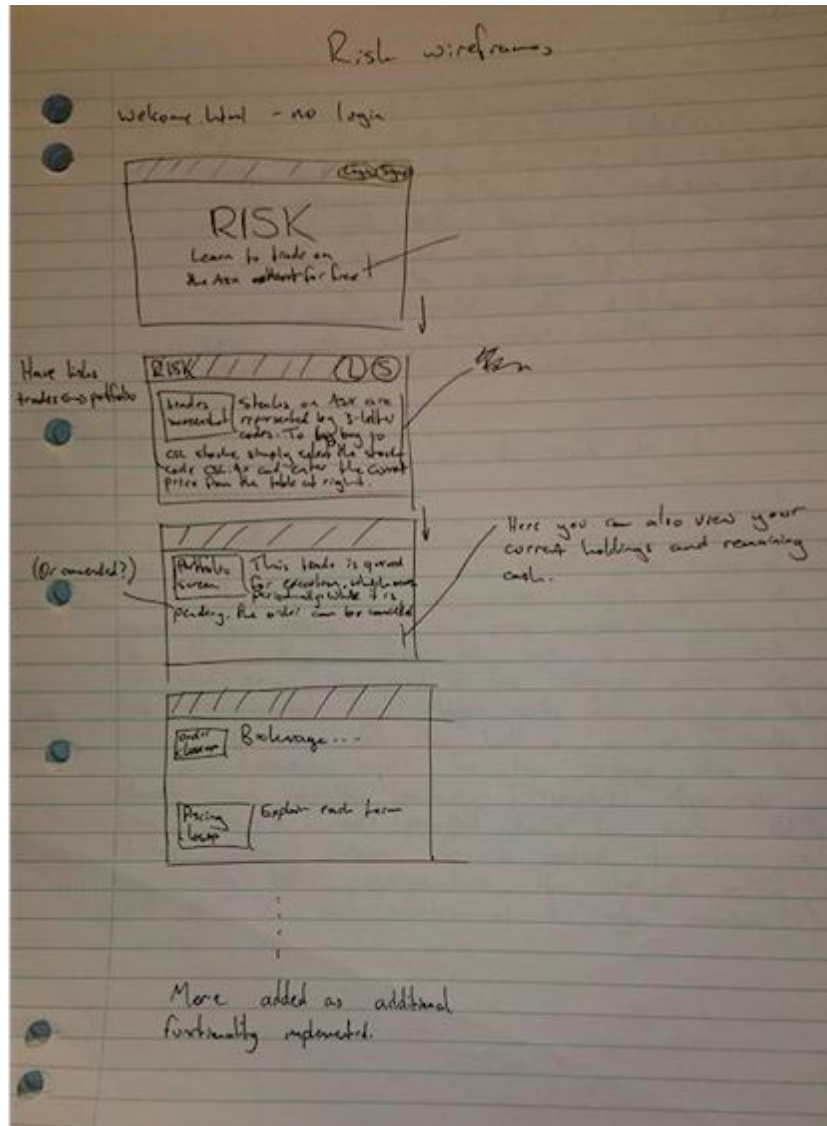 Risk wireframes
welcome.html - no login
Login Sign
RISK
Learn to trade on
the ASX for free
Have links
trades and portfolio
RISK L S
trades
screenshot
Stocks on ASX are
represented by 3-letter
codes. To buy
CSL stocks, simply select the stock
code CSL.AX and enter the current
price from the table at right.
(Or amended?)
Portfolio
screen
This trade is queued
for execution, which
periodically. While it is
pending, the order can be cancelled
Here you can also view your
current holdings and remaining
cash.
order
closeup
Brokerage...
Pricing
closeup
Explain each term
More added as additional
functionality implemented.